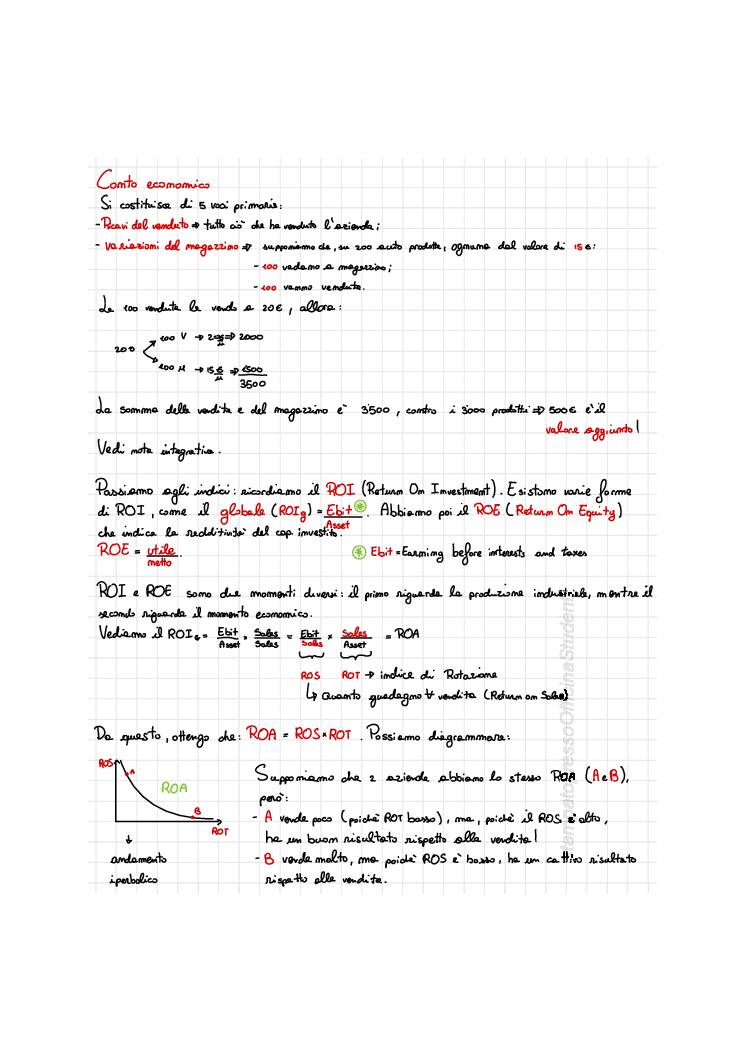 Conto economico
Si costituisce di 5 voci primarie:
- Ricavi del venduto ⇒ tutto ciò che ha venduto l'azienda;
- Variazioni del magazzino ⇒ supponiamo che, su 200 auto prodotte, ognuna dal valore di 15€:
- 100 vadano a magazzino;
- 100 vanno vendute.
Le 100 vendute le vendo a 20€, allora:
100 V → 20€/μ ⇒ 2000
200
100 M → 15€/μ ⇒ 1500
3500
La somma delle vendite e del magazzino è 3500, contro i 3000 prodotti ⇒ 500€ è il
valore aggiunto!
Vedi nota integrativa.
Passiamo agli indici: ricordiamo il ROI (Return On Investment). Esistono varie forme
di ROI, come il globale (ROIg) = Ebit/Asset. Abbiamo poi il ROE (Return On Equity)
che indica la redditività del cap. investito.
ROE = utile/netto. Ebit = Earning before interests and taxes
ROI e ROE sono due momenti diversi: il primo riguarda la produzione industriale, mentre il
secondo riguarda il momento economico.
Vediamo il ROIG = Ebit/Asset × Sales/Sales = Ebit/Sales × Sales/Asset = ROA
ROS ROT → indice di Rotazione
↳ Quanto guadagno ∀ vendita (Return on Sales)
Da questo, ottengo che: ROA = ROS × ROT. Possiamo diagrammare:
ROS
A
ROA
B
ROT
↓
andamento
iperbolico
Supponiamo che 2 aziende abbiano lo stesso ROA (A e B),
però:
- A vende poco (poiché ROT basso), ma, poiché il ROS è alto,
ha un buon risultato rispetto alle vendite!
- B vende molto, ma poiché ROS è basso, ha un cattivo risultato
rispetto alle vendite.